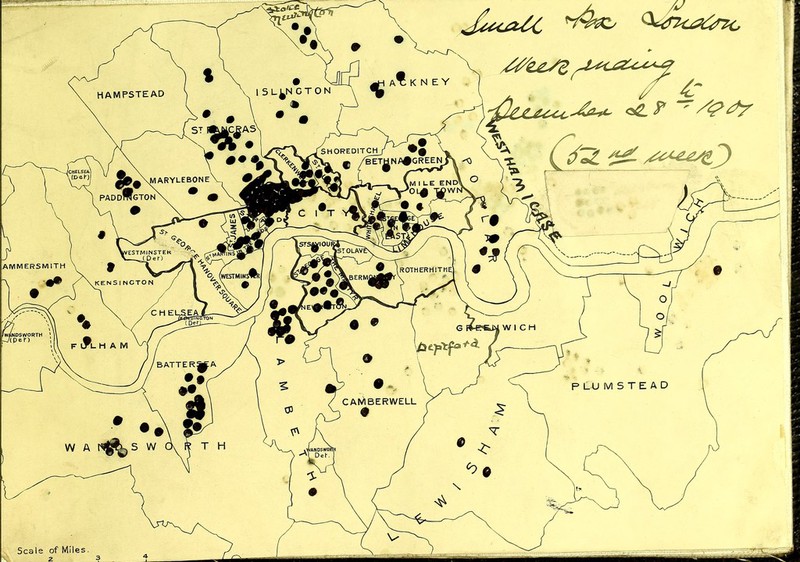 Small Pox London
Week ending
December 28th 1901
(52nd week)
Stoke
Newington
HAMPSTEAD
ISLINGTON
HACKNEY
ST PANCRAS
WESTHAM 1 CASE
SHOREDITCH
CLERKENWELL
BETHNAL GREEN
CHELSEA
(Det)
MARYLEBONE
PADDINGTON
MILE END
OLD TOWN
POPLAR
CITY
ST JAMES
LIMEHOUSE
ST GEORGE HANOVER SQUARE
ST MARTINS
WESTMINSTER
(Det)
WESTMINSTER
ST SAVIOURS
ST OLAVE
HAMMERSMITH
KENSINGTON
BERMONDSEY
ROTHERHITHE
WOOLWICH
CHELSEA
KENSINGTON
(Det)
NEWINGTON
WANDSWORTH
(Det)
FULHAM
GREENWICH
Deptford
BATTERSEA
LAMBETH
PLUMSTEAD
CAMBERWELL
WANDSWORTH
WANDSWORTH
Det.
LEWISHAM
Scale of Miles.
2 3 4